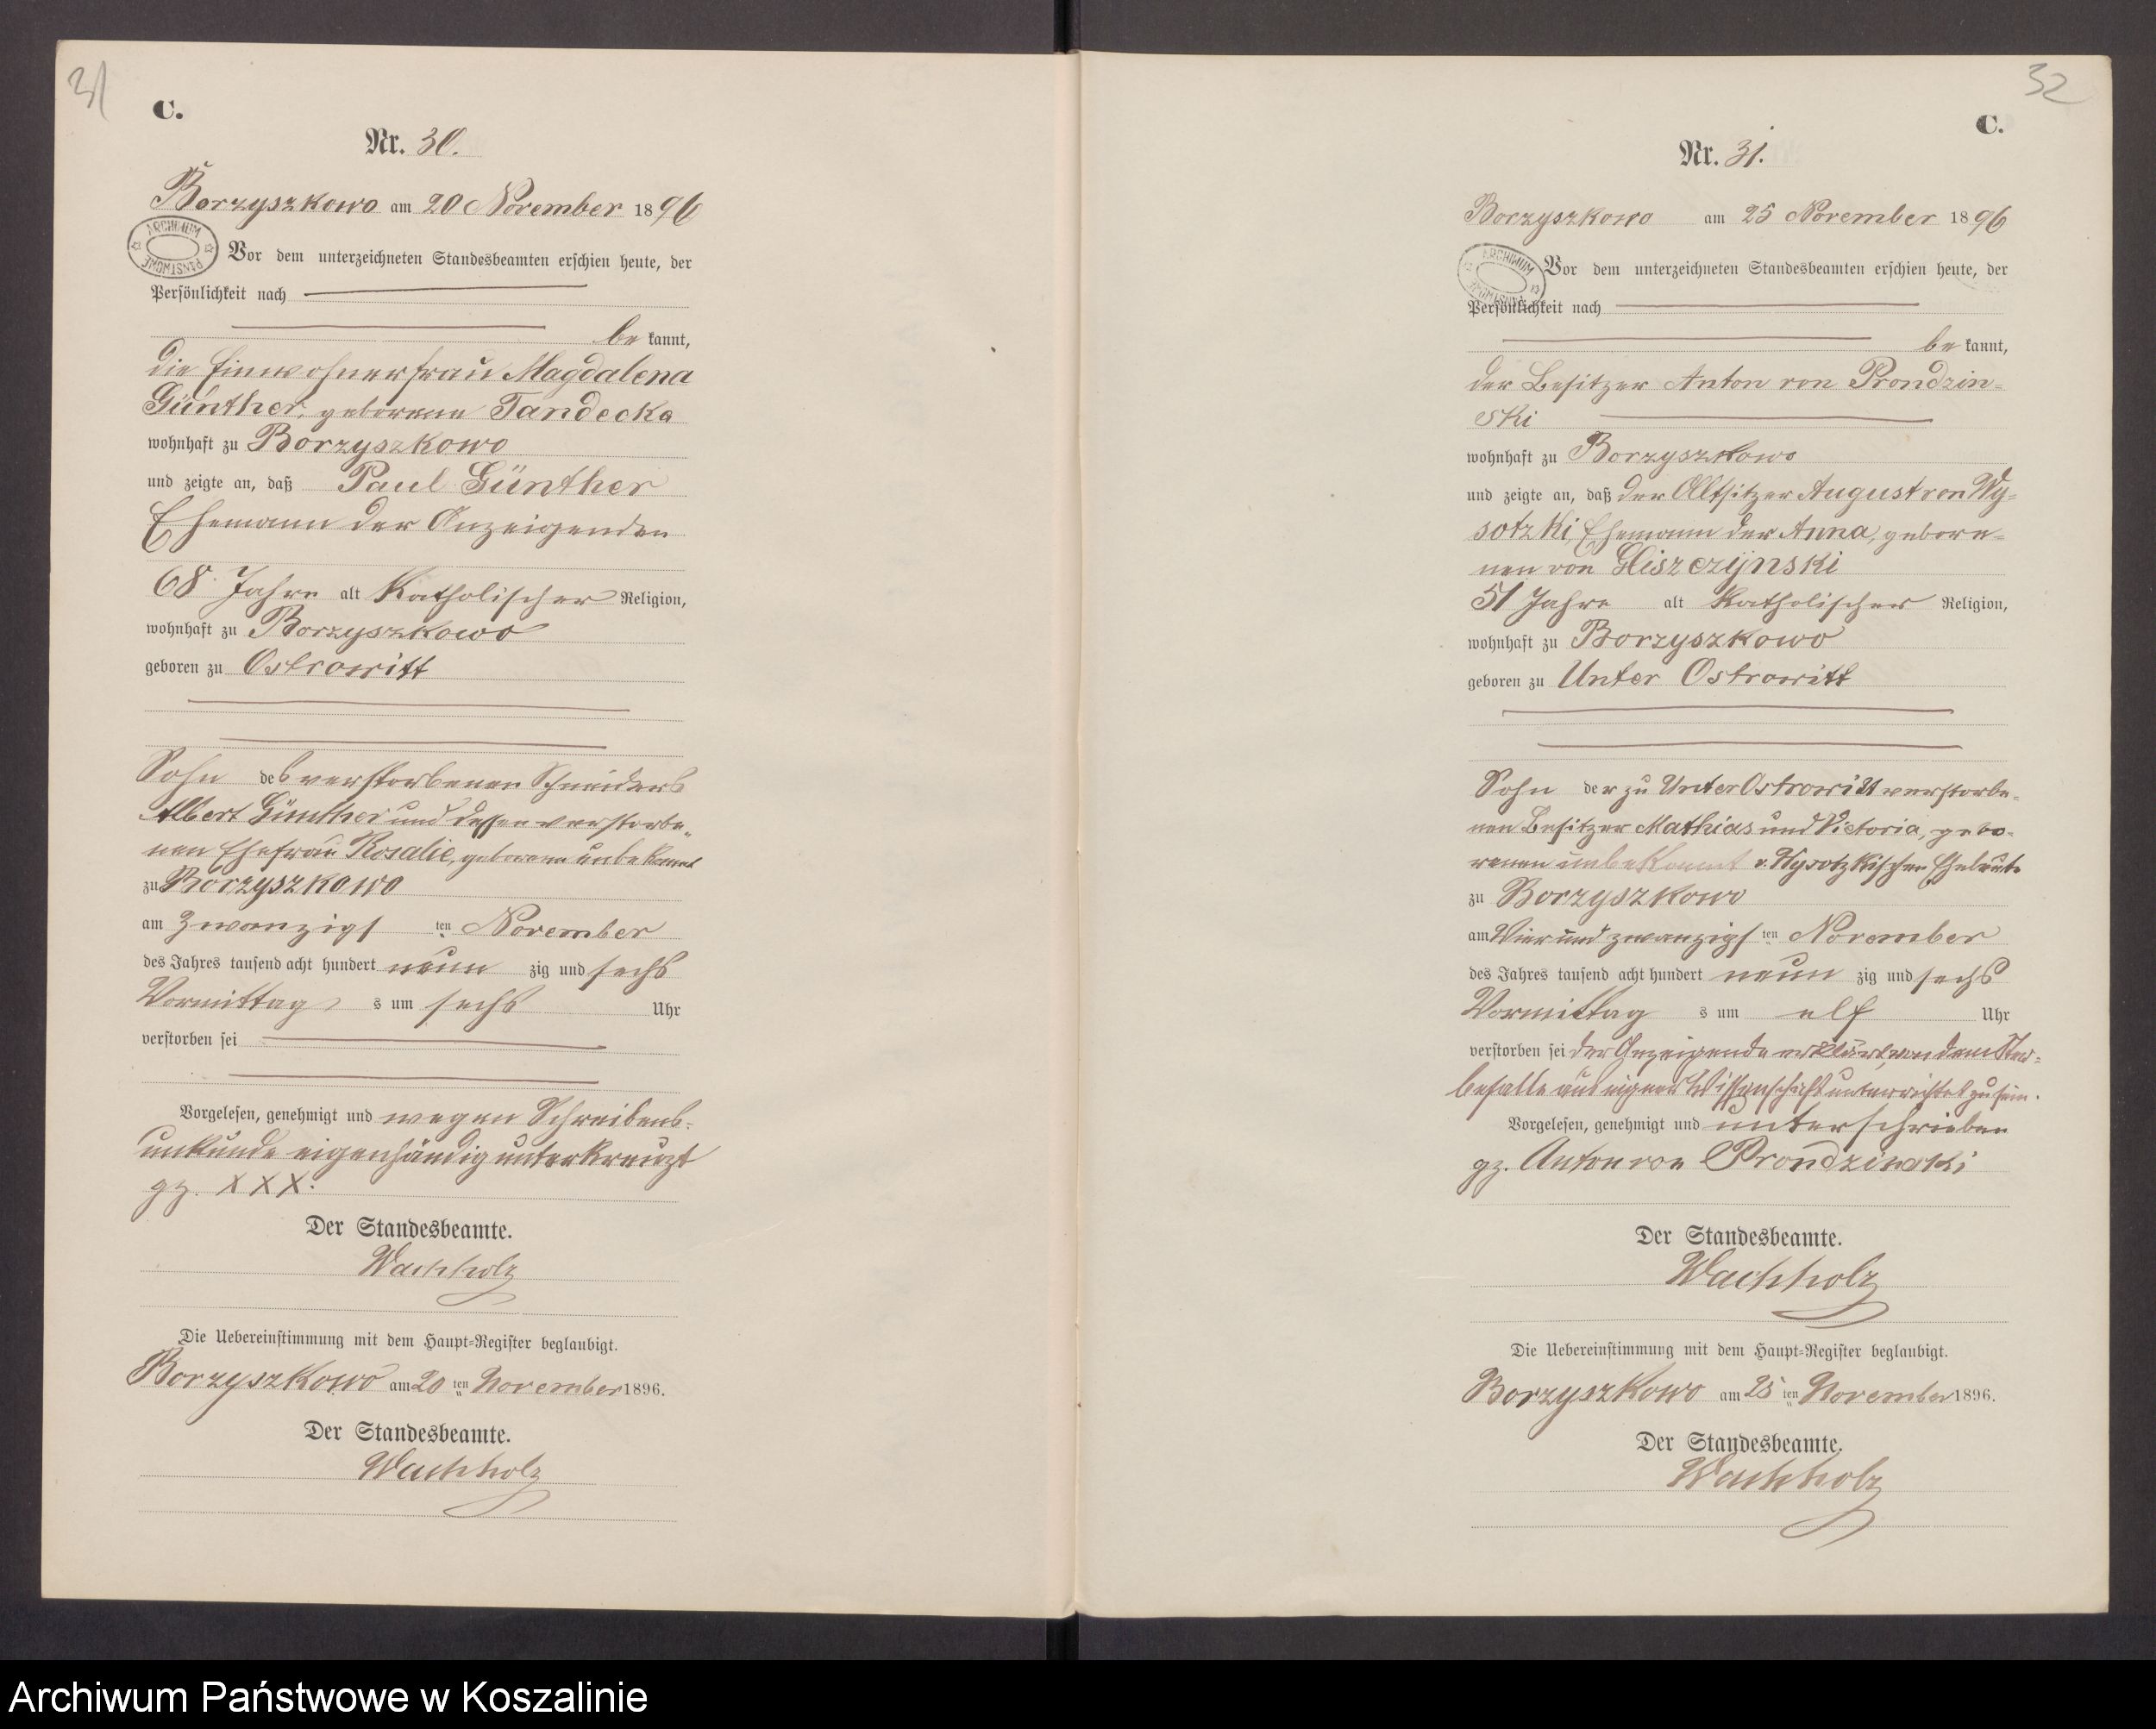 31
C.
Nr. 30.
Borzyszkowo am 20 November 1896
ARCHIWUM PAŃSTWOWE
Vor dem unterzeichneten Standesbeamten erschien heute, der
Persönlichkeit nach
be kannt,
die Einwohnerfrau Magdalena
Günther, geborene Tandecka
wohnhaft zu Borzyszkowo
und zeigte an, daß Paul Günther
Ehemann der Anzeigenden
68 Jahre alt Katholischer Religion,
wohnhaft zu Borzyszkowo
geboren zu Ostrowitt
Sohn des verstorbenen Schneiders
Albert Günther und dessen verstorbe-
nen Ehefrau Rosalie, geborene unbekannt
zu Borzyszkowo
am zwanzigs ten November
des Jahres tausend acht hundert neun zig und sechs
Vormittag s um sechs Uhr
verstorben sei
Vorgelesen, genehmigt und wegen Schreibens-
unkunde eigenhändig unterkreuzt
gz. XXX.
Der Standesbeamte.
Wachholz
Die Uebereinstimmung mit dem Haupt-Register beglaubigt.
Borzyszkowo am 20 ten November 1896.
Der Standesbeamte.
Wachholz
32
C.
Nr. 31.
Borzyszkowo am 25 November 1896
ARCHIWUM PAŃSTWOWE
Vor dem unterzeichneten Standesbeamten erschien heute, der
Persönlichkeit nach
be kannt,
der Besitzer Anton von Prondzin-
ski
wohnhaft zu Borzyszkowo
und zeigte an, daß der Altsitzer August von Wy-
sotzki, Ehemann der Anna, gebore-
nen von Gliszczynski
51 Jahre alt Katholischer Religion,
wohnhaft zu Borzyszkowo
geboren zu Unter Ostrowitt
Sohn der zu Unter Ostrowitt verstorbe-
nen Besitzer Mathias und Victoria, gebo-
renen unbekannt v. Wysotzkischen Eheleute
zu Borzyszkowo
am Vier und zwanzigs ten November
des Jahres tausend acht hundert neun zig und sechs
Vormittag s um elf Uhr
verstorben sei der Anzeigende erklärt, von dem Ster-
befalle aus eigner Wissenschaft unterrichtet zu sein.
Vorgelesen, genehmigt und unterschrieben
gz. Anton von Prondzinski
Der Standesbeamte.
Wachholz
Die Uebereinstimmung mit dem Haupt-Register beglaubigt.
Borzyszkowo am 25 ten November 1896.
Der Standesbeamte.
Wachholz
Archiwum Państwowe w Koszalinie